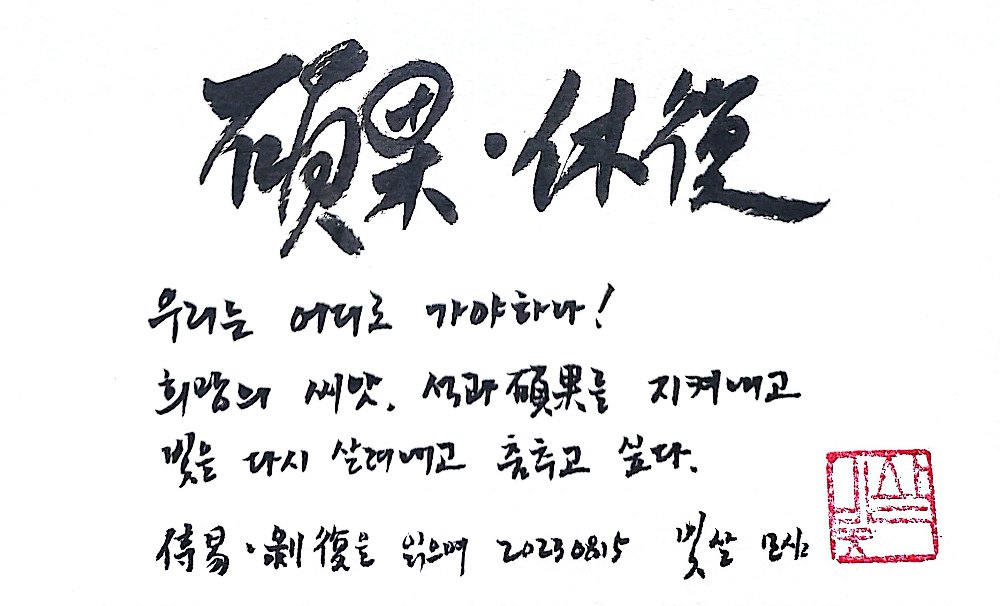 碩果·休復
우리는 어디로 가야하나!
희망의 씨앗. 석과碩果를 지켜내고
빛을 다시 살려내고 춤추고 싶다.
侍易·剝復을 읽으며 20230815 빛살 모심
빛살